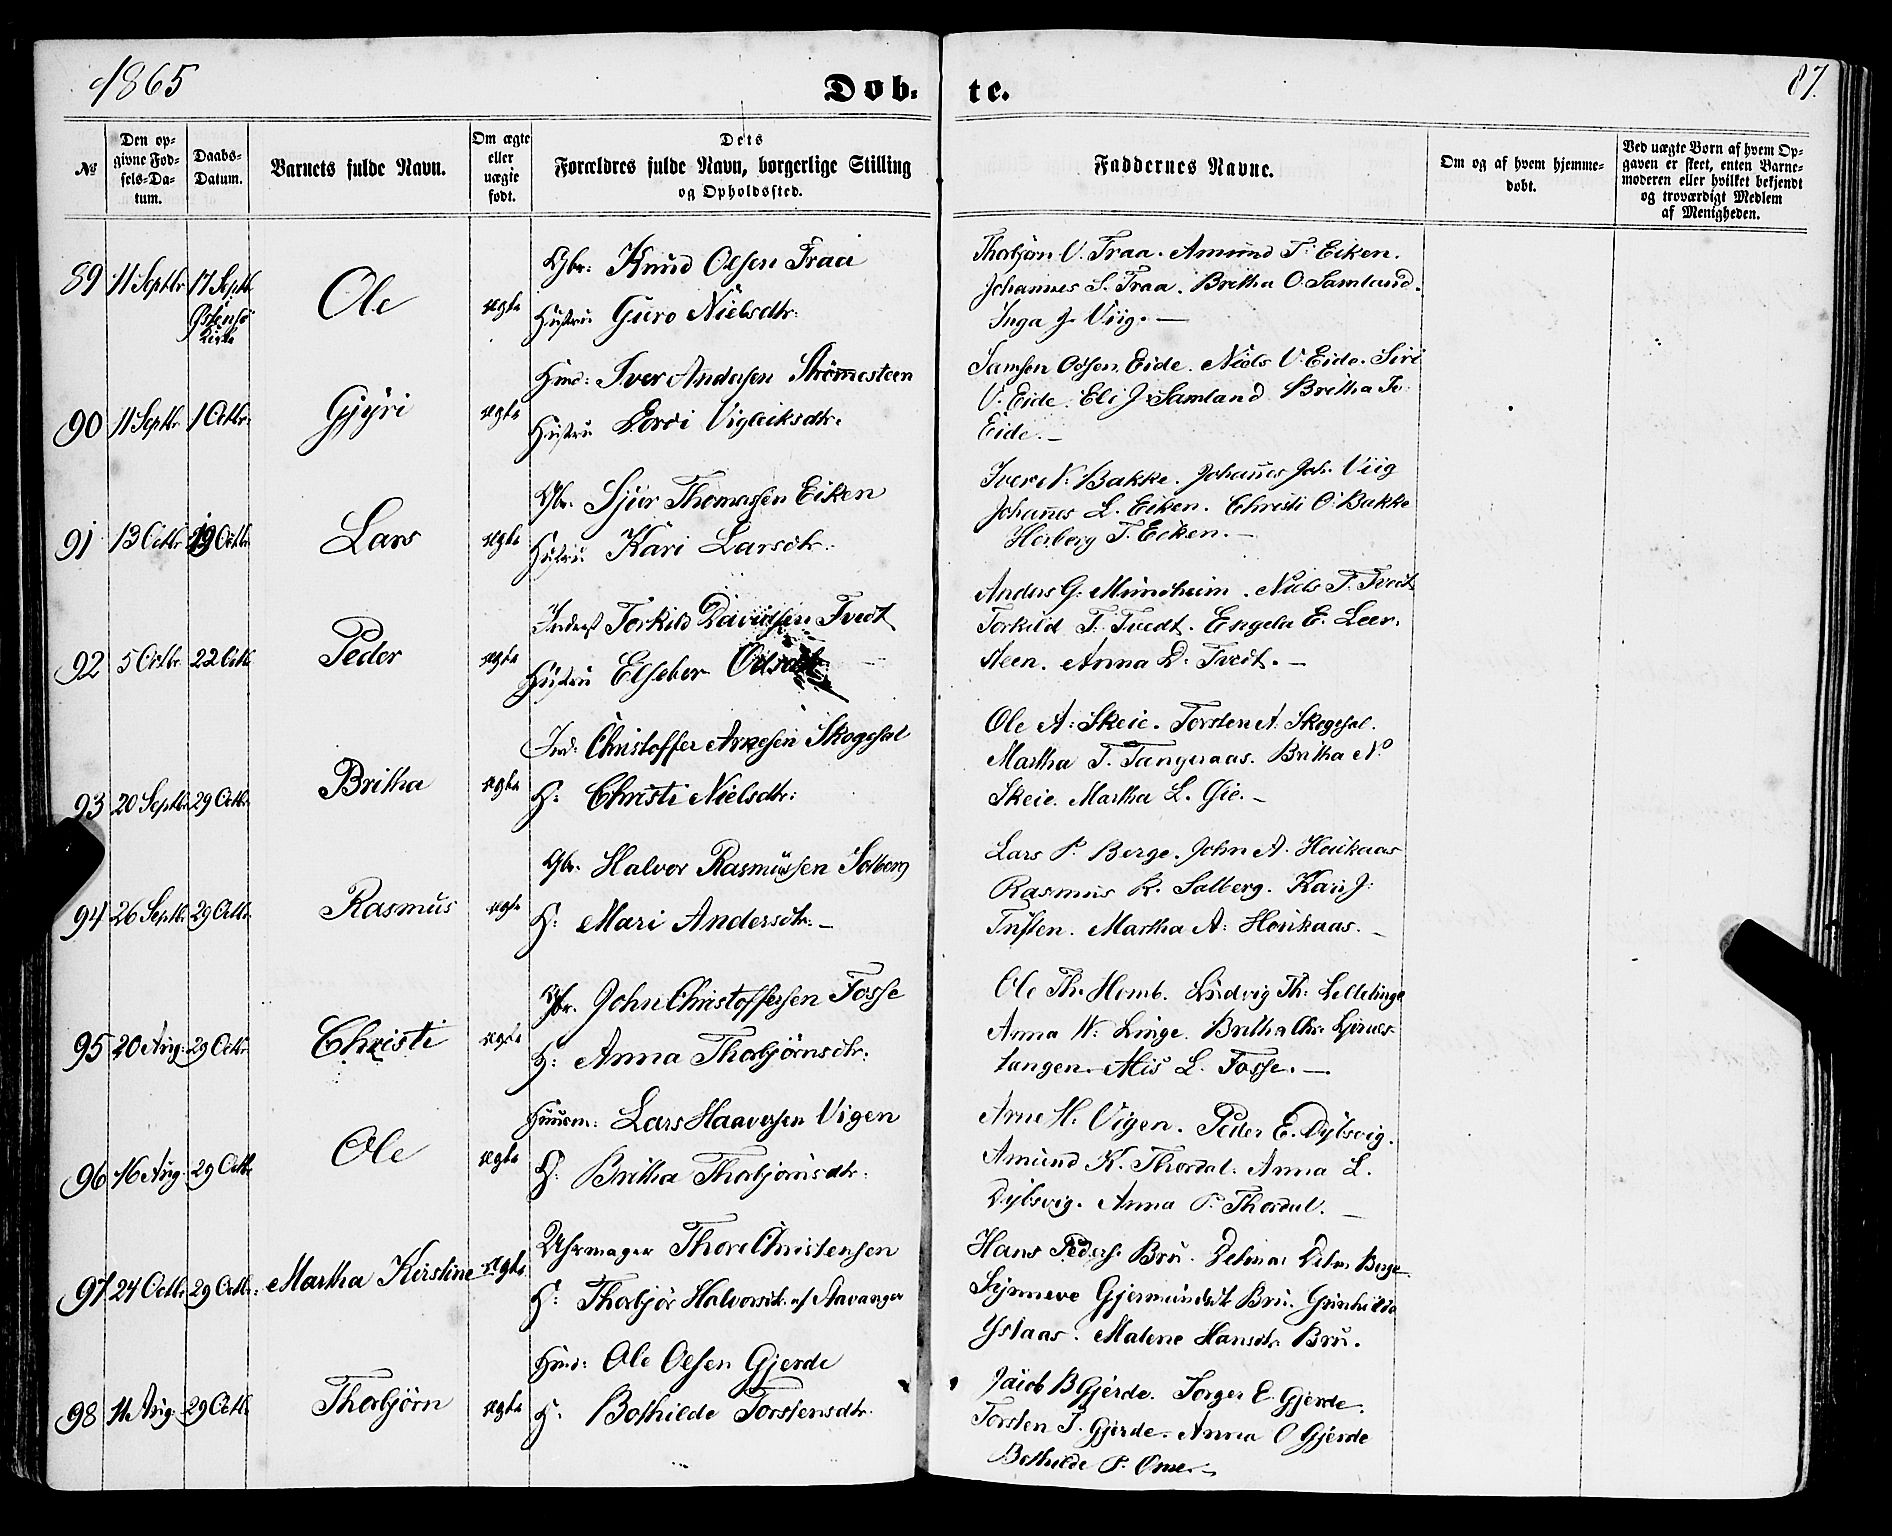 1865
Døb-
te.
87.
№
Den op-
givne Fød-
sels-Da-
tum.
Daabs-
Datum.
Barnets fulde Navn.
Om ægte
eller
uægte
født.
Dets
Forældres fulde Navn, borgerlige Stilling
og Opholdssted.
Faddernes Navne.
Om og af hvem hjemme-
døbt.
Ved uægte Børn af hvem Op-
gaven er skeet, enten Barne-
moderen eller hvilket bekjendt
og troværdigt Medlem
af Menigheden.
89 11 Septbr 17 Septb
Østensö
Kirke
Ole
ægte
Gbr: Knud Olsen Traa
Hustru Guro Nielsdtr:
Thorbjørn V. Traa. Amund T. Eiken.
Johannes S. Traa. Britha O. Samland.
Inga J. Viig. —
90 11 Septbr. 1 Octbr.
Gjyri
ægte
Hmd: Iver Andersen Strømmesteen
Hustru Vigleiksdtr.
Samson Eide. Niels V. Eide. Siri
V. Eide. Eli J. Samland Britha
Eide. —
91 13 Octbr 19 Octbr.
Lars
ægte
Gbr. Sjur Thomassen Eiken
Hustru Kari Larsdtr.
Iver N. Bakke. Johannes Joh. Viig
Johannes L. Eiken. Christi O. Bakke
Herborg T. Eiken. —
92 5 Octbr. 22 Octb
Peder
ægte
Inderst Torkild Davidsen Tvedt
Hustru Elseber Odsdtr —
Anders G. Mundheim. Niels T. Tvedt
Torkild T. Tvedt. Engela E. Leer-
steen. Anna D. Tvedt. —
93 20 Septbr. 29 Octbr.
Britha
ægte
Ind: Christoffer Arnesen Skogesal
H: Christi Nielsdtr:
Ole A: Skeie. Torsten A. Skogesal.
Martha T. Tangeraas. Britha N.
Skeie. Martha L. —
94 26 Septbr 29 Octbr.
Rasmus
ægte
Gbr. Halvor Rasmussen Solberg
H: Mari Andersdtr: —
Lars P. Berge. John A. Houkaas
Rasmus R. Solberg. Kari J:
Tuften. Martha A: Houkaas. —
95 20 Aug: 29 Octbr.
Christi
ægte
Gbr. John Christoffersen Fosse
H: Anna Thorbjørnsdtr:
Ole Th. Ludvig Th:
Anna W. Linge. Britha Chr.
tangen. L. Fosse. —
96 16 Aug. 29 Octbr
Ole
ægte
Huusm: Lars Haaversen Vigen
H: Britha Thorbjørnsdtr:
Arne H. Vigen. Peder E. Dybsvig.
Amund K. Thordal. Anna L.
Dybsvig. Anna P. Thordal. —
97 24 Octbr. 29 Octbr.
Martha Kirstine
ægte
Uhrmager Thore Christensen
H: Thorbjør Halvorsdtr. af Stavanger
Hans Peders. Bru. Berge
Synneve Gjermundsdt Bru. Gunhilda
Ystaas. Malene Hansdtr. Bru.
98 Aug. 29 Octbr.
Thorbjørn
ægte
Hmd: Ole Olsen Gjerde
H. Bothilde Torstensdtr.
Jacob B Gjerde. Torger E. Gjerde.
Torsten T. Gjerde. Anna O Gjerde
Bothilde P. —